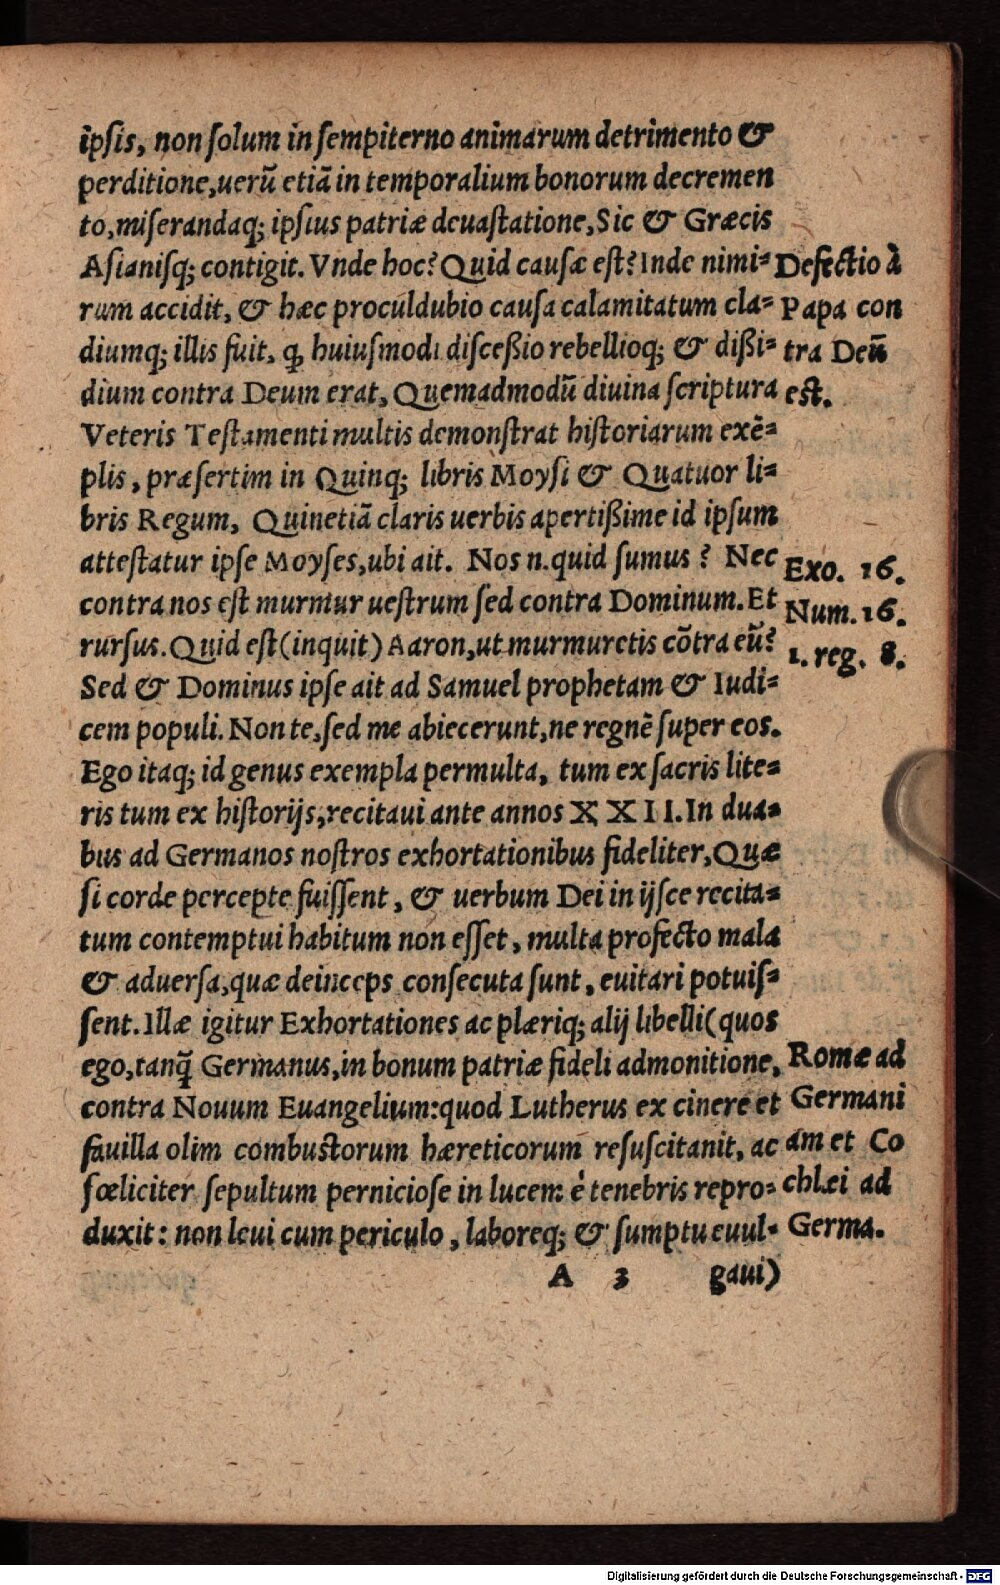 ipsis, non solum in sempiterno animarum detrimento &
perditione,uerũ etiã in temporalium bonorum decremen
to,miserandaq; ipsius patriæ deuastatione,Sic & Græcis
Asianisq; contigit. Vnde hoc? Quid causæ est? Inde nimi=
rum accidit, & hæc proculdubio causa calamitatum cla=
diumq; illis fuit, ꝙ huiusmodi disceßio rebellioq; & dißi=
dium contra Deum erat, Quemadmodũ diuina scriptura
Veteris Testamenti multis demonstrat historiarum exẽ=
plis, præsertim in Quinq; libris Moysi & Quatuor li=
bris Regum, Quinetiã claris uerbis apertißime id ipsum
attestatur ipse Moyses,ubi ait. Nos n.quid sumus? Nec
contra nos est murmur uestrum sed contra Dominum. Et
rursus. Quid est(inquit) Aaron,ut murmuretis cõtra eũ?
Sed & Dominus ipse ait ad Samuel prophetam & Iudi=
cem populi. Non te,sed me abiecerunt,ne regnẽ super eos.
Ego itaq; id genus exempla permulta, tum ex sacris lite=
ris tum ex historijs,recitaui ante annos XXII. In dua=
bus ad Germanos nostros exhortationibus fideliter,Quæ
si corde percepte fuissent, & uerbum Dei in ijsce recita=
tum contemptui habitum non esset, multa profecto mala
& aduersa,quæ deinceps consecuta sunt, euitari potuis=
sent. Illæ igitur Exhortationes ac plæriq; alij libelli(quos
ego,tanq̃ Germanus,in bonum patriæ fideli admonitione,
contra Nouum Euangelium:quod Lutherus ex cinere et
fauilla olim combustorum hæreticorum resuscitanit, ac
fœliciter sepultum perniciose in lucem è tenebris repro=
duxit: non leui cum periculo, laboreq; & sumptu euul=
A 3 gaui)
Defectio à
Papa con
tra Deũ
est.
Exo. 16.
Num. 16.
1. reg. 8.
Romæ ad
Germani
am et Co
chlæi ad
Germa.
Digitalisierung gefördert durch die Deutsche Forschungsgemeinschaft - DFG